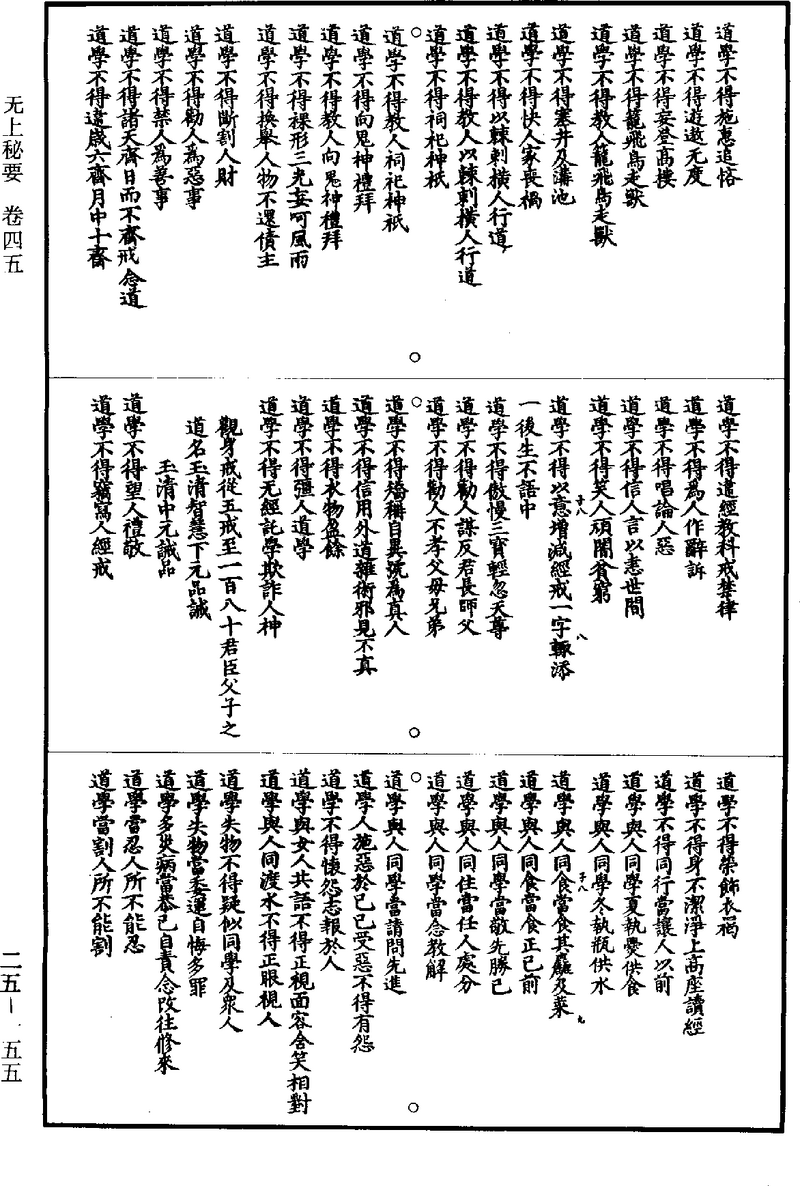 道學不得施惠追悋
道學不得遊遨无度
道學不得妄登高樓
道學不得籠飛鳥走獸
道學不得教人籠飛鳥走獸
道學不得塞井及溝池
道學不得快人家喪禍
道學不得以棘刺橫人行道
道學不得教人以棘刺橫人行道
道學不得祠祀神祇
道學不得教人祠祀神祇
道學不得向鬼神禮拜
道學不得教人向鬼神禮拜
道學不得裸形三光妄呵風雨
道學不得換舉人物不還債主
道學不得斷割人財
道學不得勸人為惡事
道學不得禁人為善事
道學不得諸天齋日而不齋戒念道
道學不得違歲六齋月中十齋
道學不得違經教科戒禁律
道學不得為人作辭訴
道學不得唱論人惡
道學不得信人言以恚世間
道學不得笑人頑闇貧窮
道學不得以意增減經戒一字輒添
一後生不語中
道學不得傲慢三寶輕忽天尊
道學不得勸人謀反君長師父
道學不得勸人不孝父母兄弟
道學不得矯稱自異號為真人
道學不得信用外道雜術邪見不真
道學不得衣物盈餘
道學不得彊人道學
道學不得无經託學欺詐人神
觀身戒從五戒至一百八十君臣父子之
道名玉清智慧下元品誡
玉清中元誡品
道學不得望人禮敬
道學不得竊寫人經戒
道學不得榮飾衣褐
道學不得身不潔淨上高座讀經
道學不得同行當讓人以前
道學與人同學夏執憂供食
道學與人同學冬執瓶供水
道學與人同食當食其麤及菜
道學與人同食當食正己前
道學與人同學當敬先勝己
道學與人同住當任人處分
道學與人同學當念教解
道學與人同學當請問先進
道學人施惡於己己受惡不得有怨
道學不得懷怨志報於人
道學與女人共語不得正視面容含笑相對
道學與人同渡水不得正眼視人
道學失物不得疑似同學及眾人
道學失物當委運自悔多罪
道學多災病當恭己自責念改往修來
道學當忍人所不能忍
道學當割人所不能割
无上秘要 卷四五
二五—五五